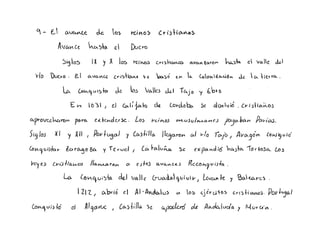 9- El avance de los reinos cristianos
Avance hasta el Duero
Siglos IX y X los reinos cristianos avanzaron hasta el valle del
río Duero. El avance cristiano se basó en la colonización de la tierra.
La conquista de los Valles del Tajo y Ebro
En 1031, el Califato de Cordoba se disolvió. Cristianos
aprovecharon para extenderse. Los reinos musulmanes pagaban Parias.
Siglos XI y XII, Portugal y Castilla llegaron al río Tajo, Aragón consiguió
conquistar Zaragoza y Teruel, Cataluña se expandió hasta Tortosa. Los
reyes cristianos llamaron a estos avances Reconquista.
La conquista del valle Guadalquivir, Levante y Baleares.
1212, abrió el Al-Andalus a los ejércitos cristianos. Portugal
conquistó el Algarve, Castilla se apoderó de Andalucía y Murcia.